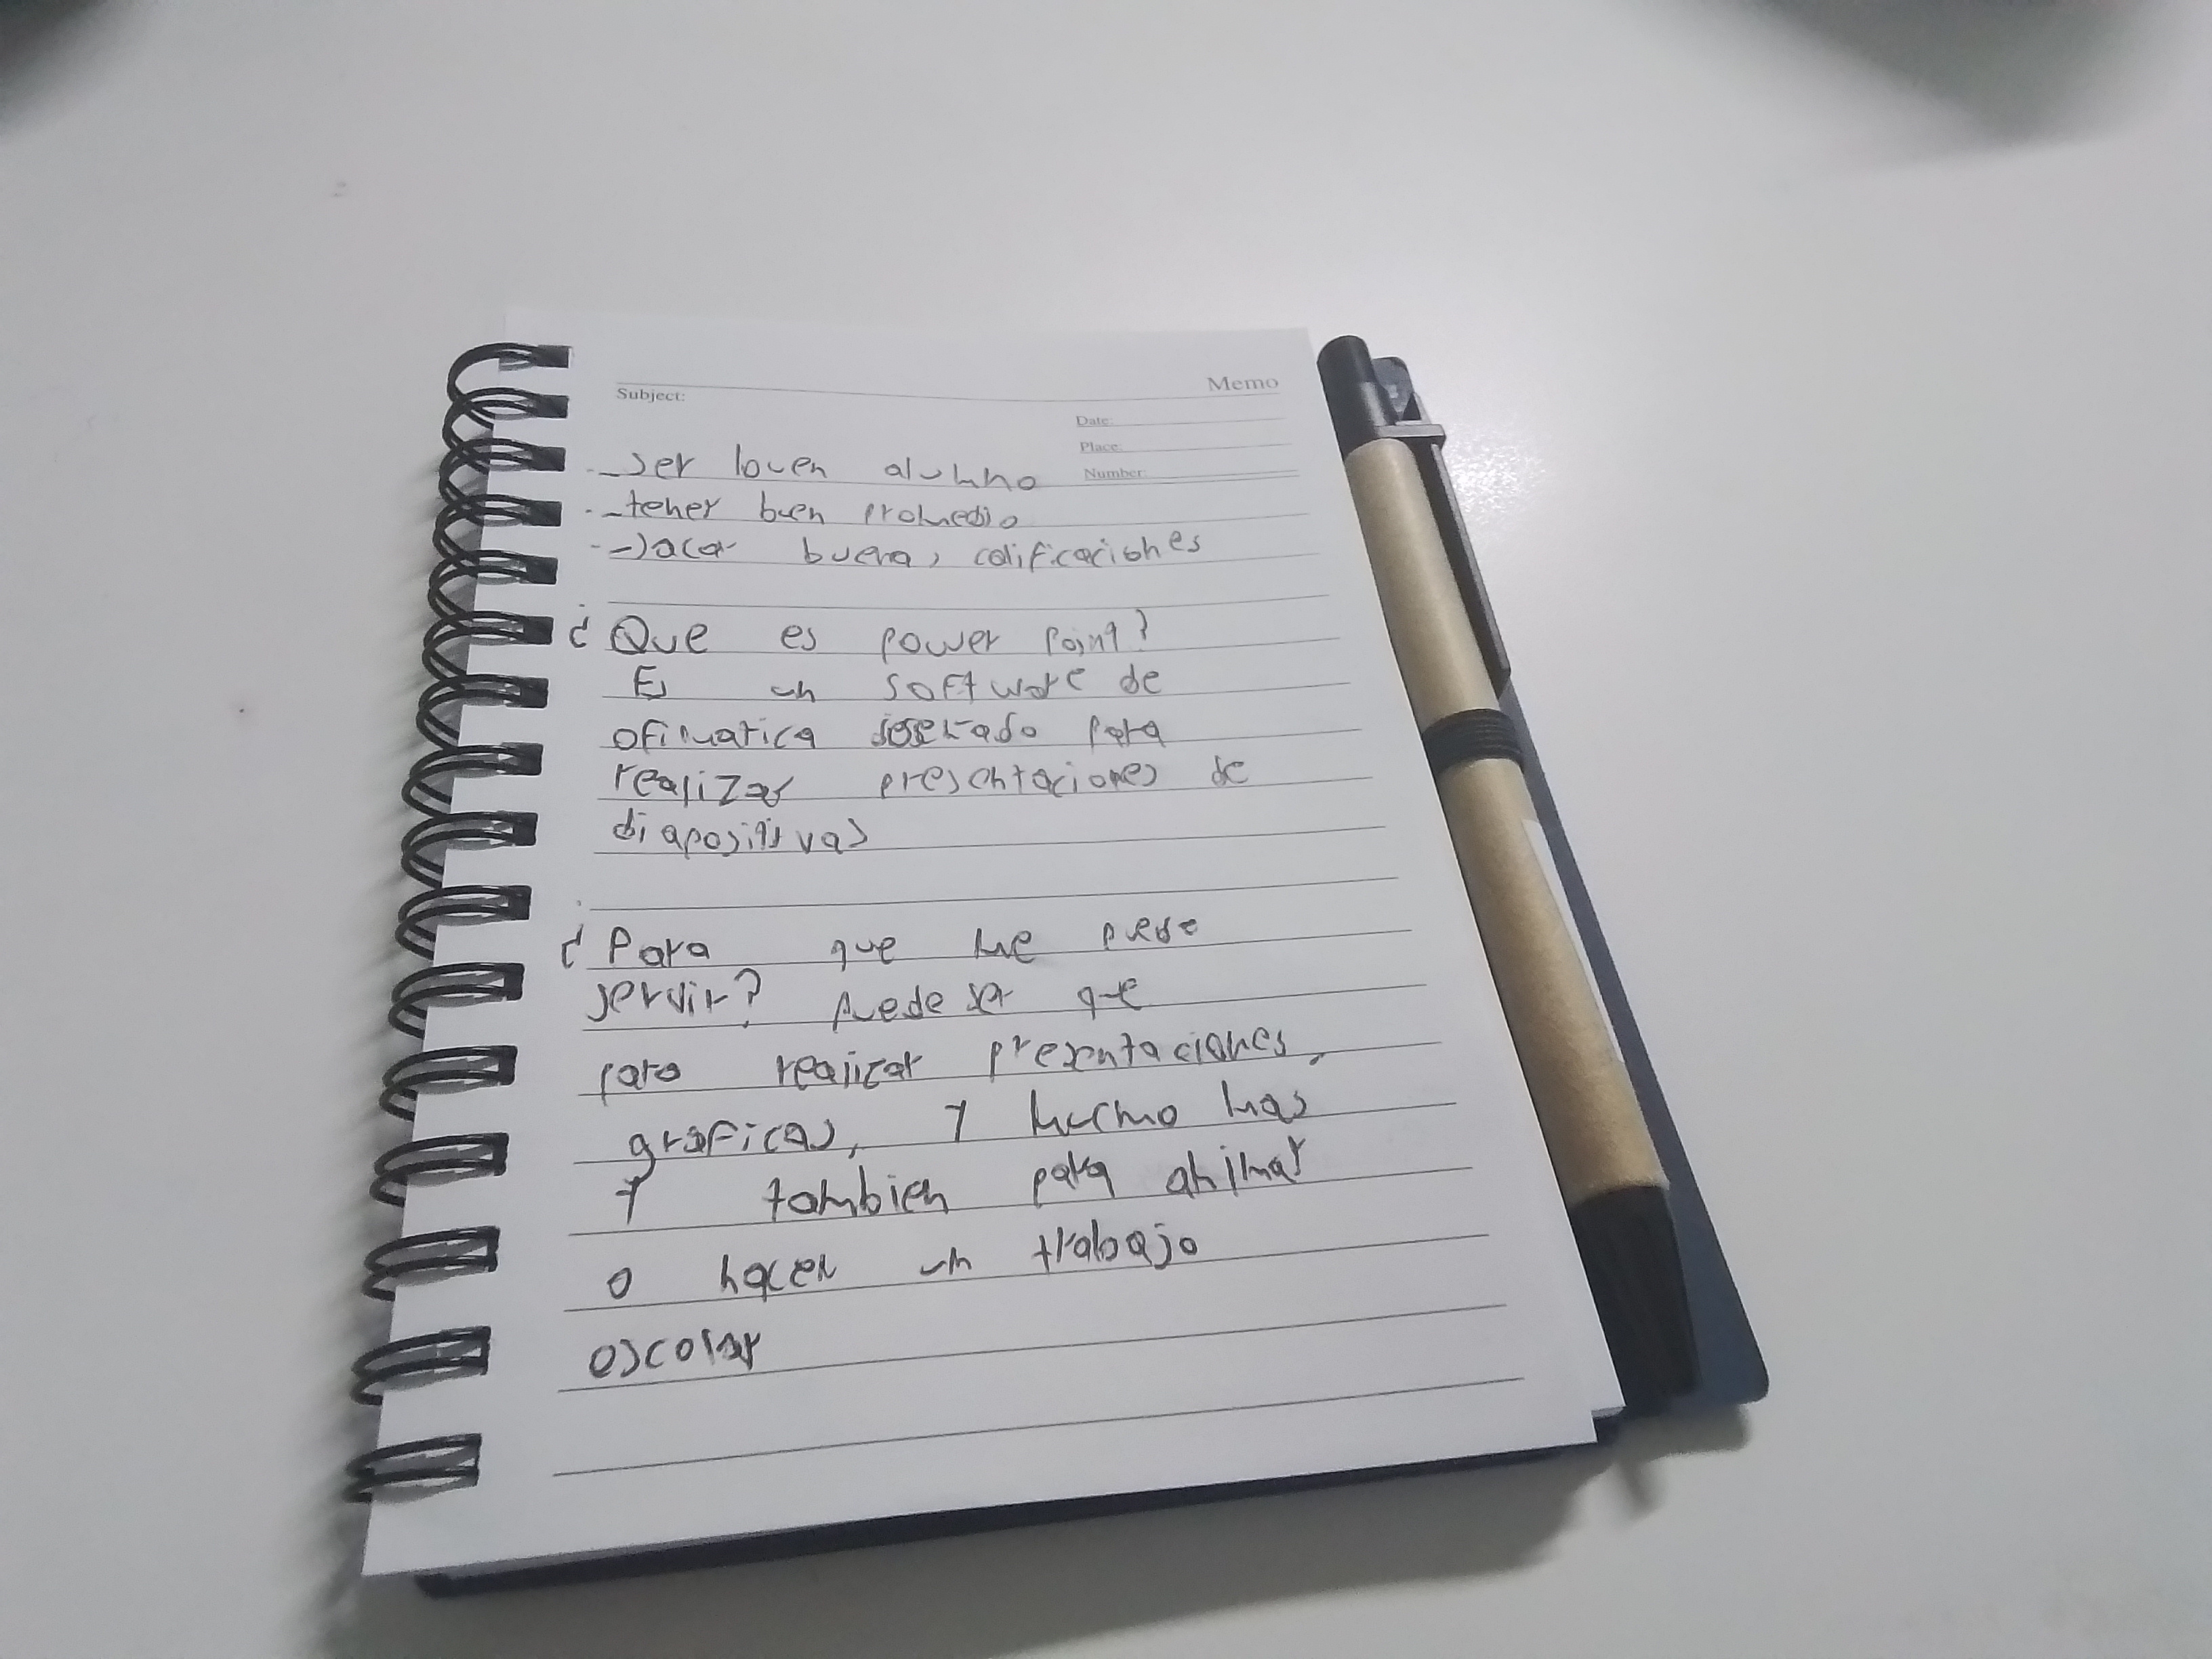 Memo
Subject:
Date:
Place:
Number:
- ser buen alumno
- tener buen promedio
- sacar buenas calificaciones
¿Que es power point?
Es un software de
ofimatica diseñado para
realizar presentaciones de
diapositivas
¿Para que me puede
servir? Puede ser que
para realizar presentaciones,
graficas, y mucho mas
y tambien para animar
o hacer un trabajo
escolar